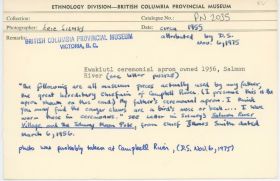 ETHNOLOGY DIVISION—BRITISH COLUMBIA PROVINCIAL MUSEUM
Collection: Catalogue No.: PN 2035
Photographer: Date: circa 1955
Remarks: attributed by D.S.
Nov. 6, 1975
BRITISH COLUMBIA PROVINCIAL MUSEUM
VICTORIA, B.C.
Kwakiutl ceremonial apron owned 1956, Salmon
River (one letter missed)
"The following are all museum pieces actually used by my father,
the great hereditary Chieftain of Campbell River (I presume this is the
apron shown on this card) My father's ceremonial apron. I think
you may find the cougar claws are a bird's nose or beak.... I was
were some of our beads." see letter in Scaley's Salmon River
Village and the Salmon Moon Pole, from Chief James Smith dated
March 6, 1956.
photo was probably taken at Campbell River, (D.S. Nov. 6, 1975)